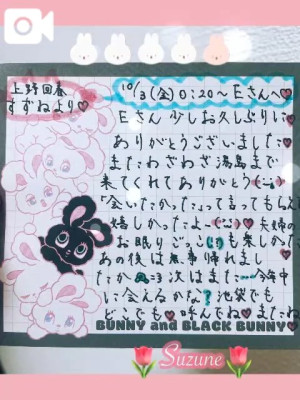 上野回春
すずねより♥
10/3(金)0:20〜Eさんへ♥
Eさん少しお久しぶりに
ありがとうございました
またわざわざ湯島まで
来てくれてありがとう
「会いたかった」って言ってもらえ
嬉しかったよー
夫婦の
お眠りごっこ も楽しかった
あの後は無事帰れまし
たか 次はまた…今年中
に会えるかな?池袋でも
どこでも♥呼んでね♥またね♥
BUNNY and BLACK BUNNY♥
Suzune